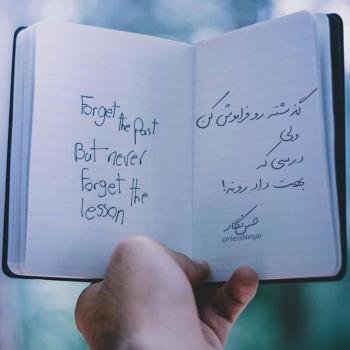 Forget
the past
But never
Forget the
lesson
گذشته رو فراموش کن
ولی
درسی که
بهت داد رو نه!
حس نگار
@HessNegar